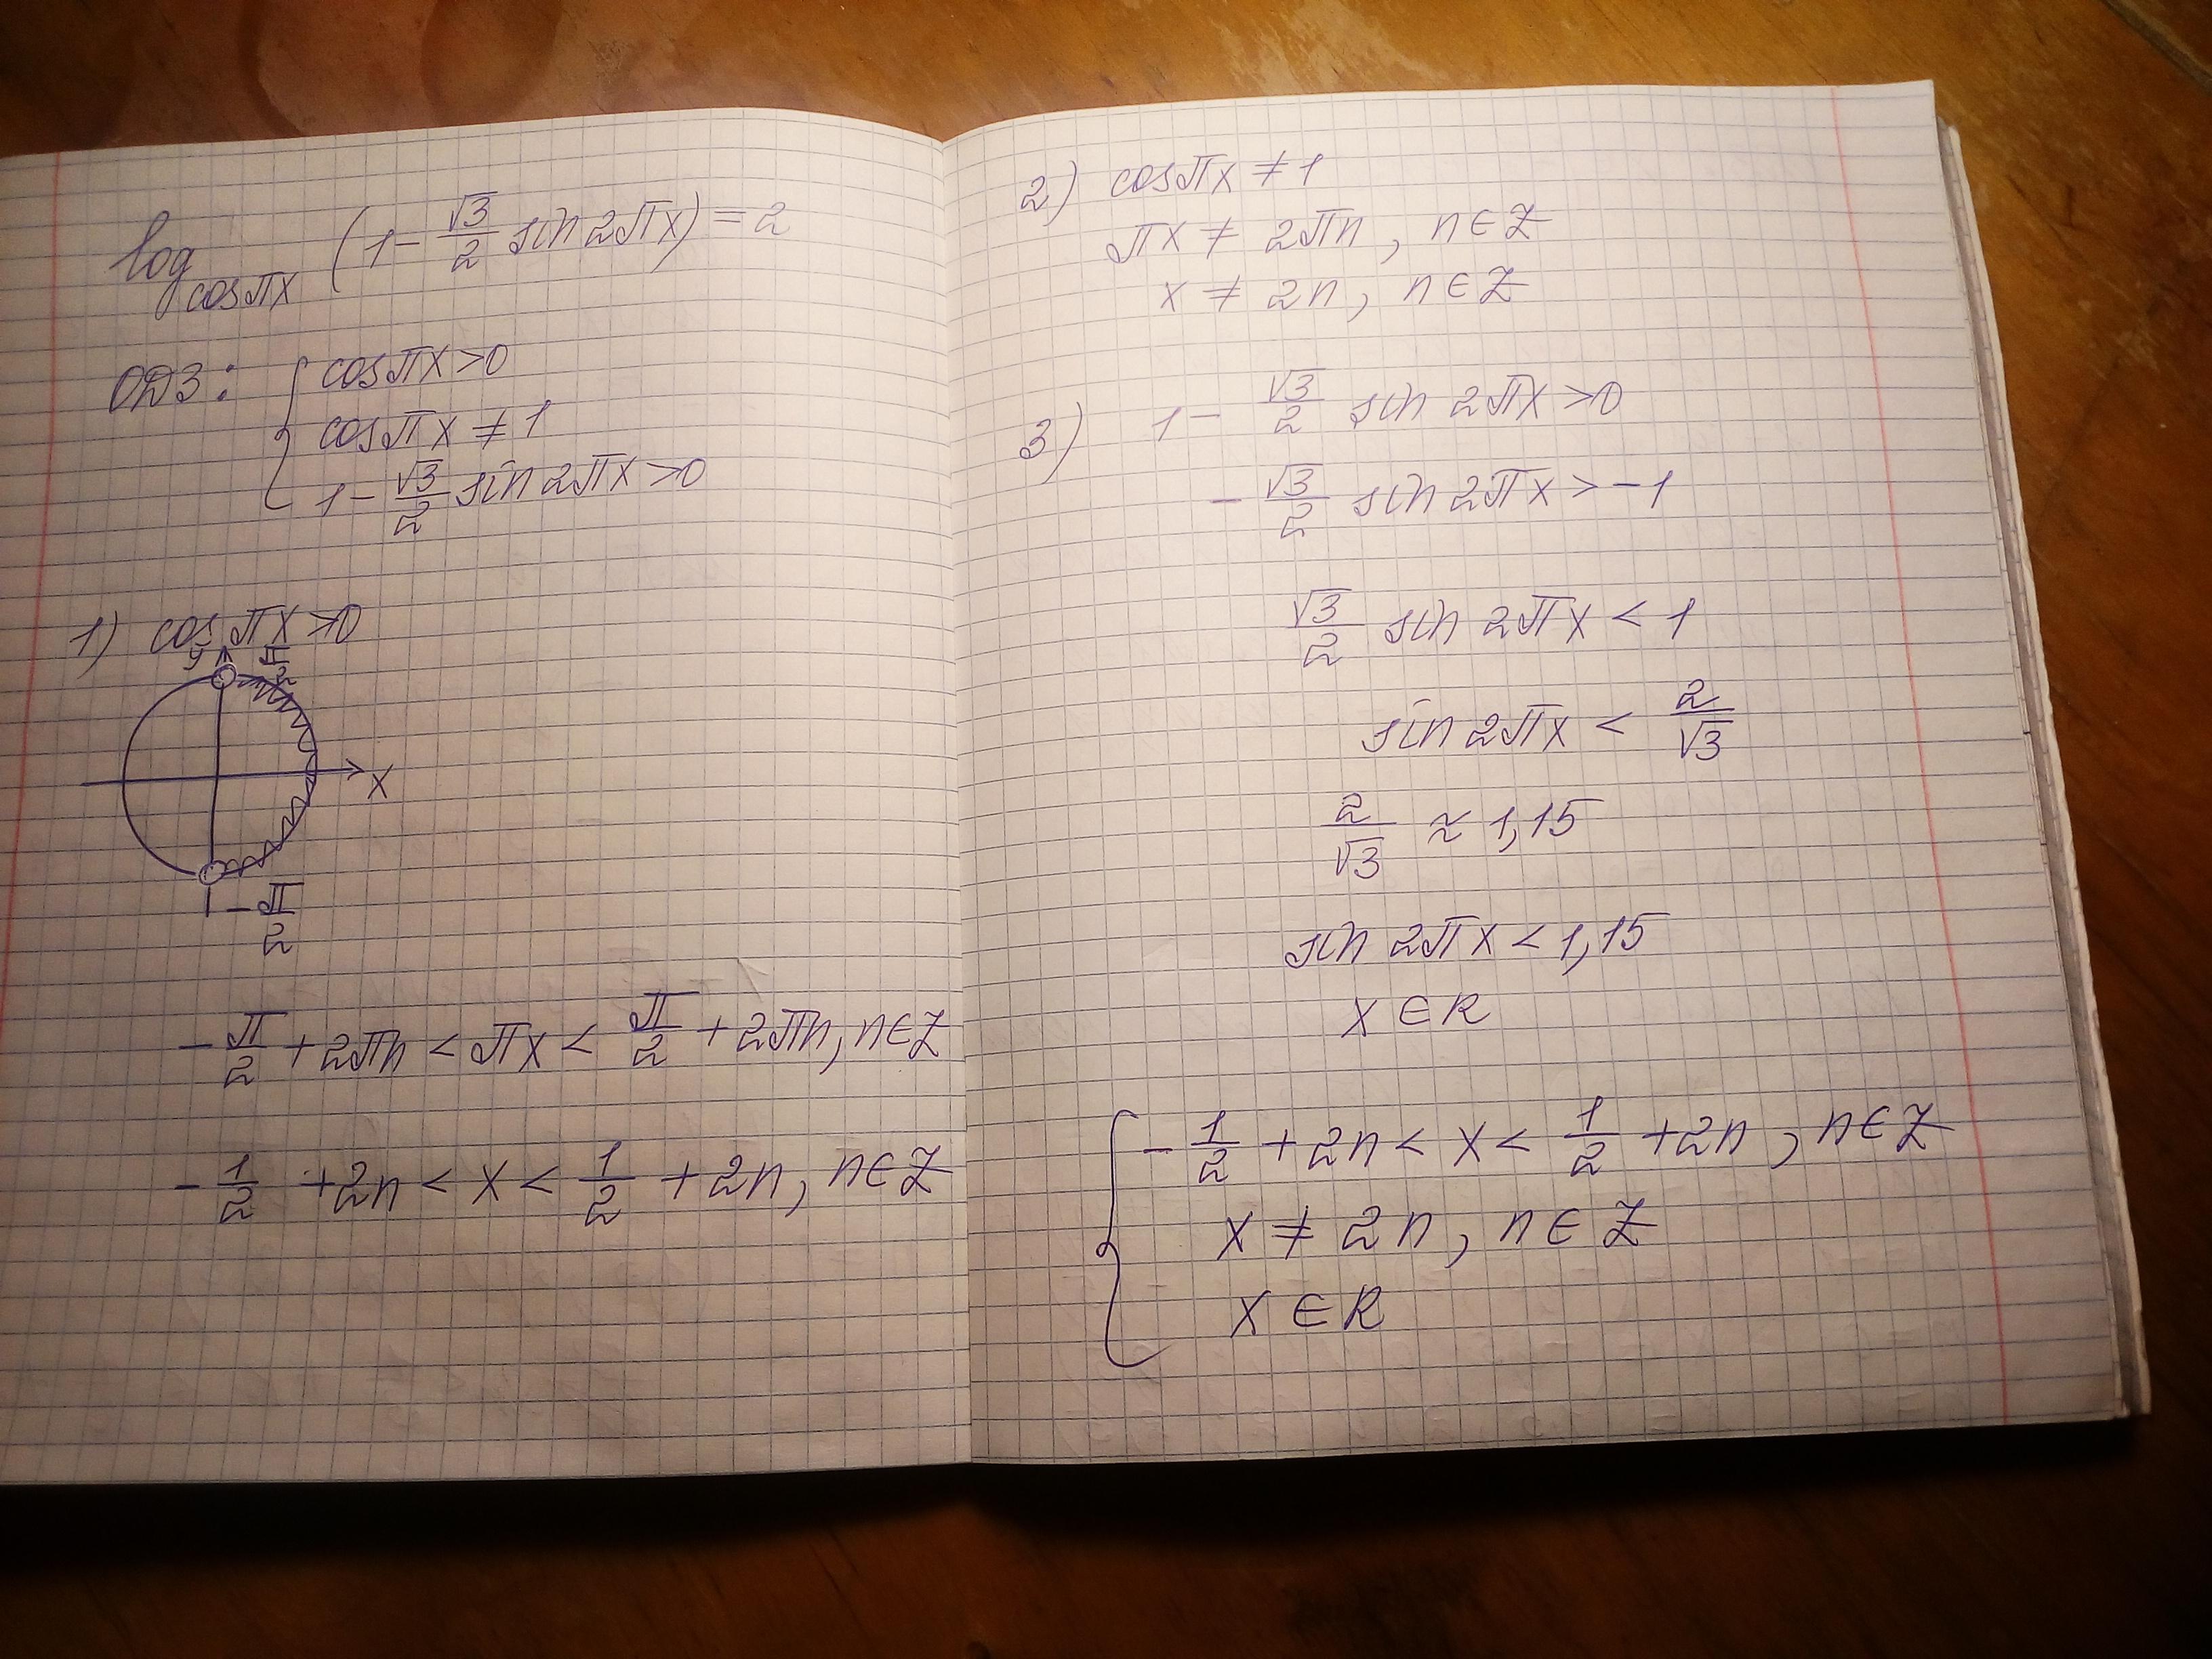 log_{cosπx} (1 - √3/2 sin 2πx) = 2
ОДЗ: { cosπx > 0
cosπx ≠ 1
1 - √3/2 sin 2πx > 0
1) cos πx > 0
y
π/2
x
-π/2
-π/2 + 2πn < πx < π/2 + 2πn, n ∈ Z
-1/2 + 2n < x < 1/2 + 2n, n ∈ Z
2) cosπx ≠ 1
πx ≠ 2πn, n ∈ Z
x ≠ 2n, n ∈ Z
3) 1 - √3/2 sin 2πx > 0
-√3/2 sin 2πx > -1
√3/2 sin 2πx < 1
sin 2πx < 2/√3
2/√3 ≈ 1,15
sin 2πx < 1,15
x ∈ R
{ -1/2 + 2n < x < 1/2 + 2n, n ∈ Z
x ≠ 2n, n ∈ Z
x ∈ R